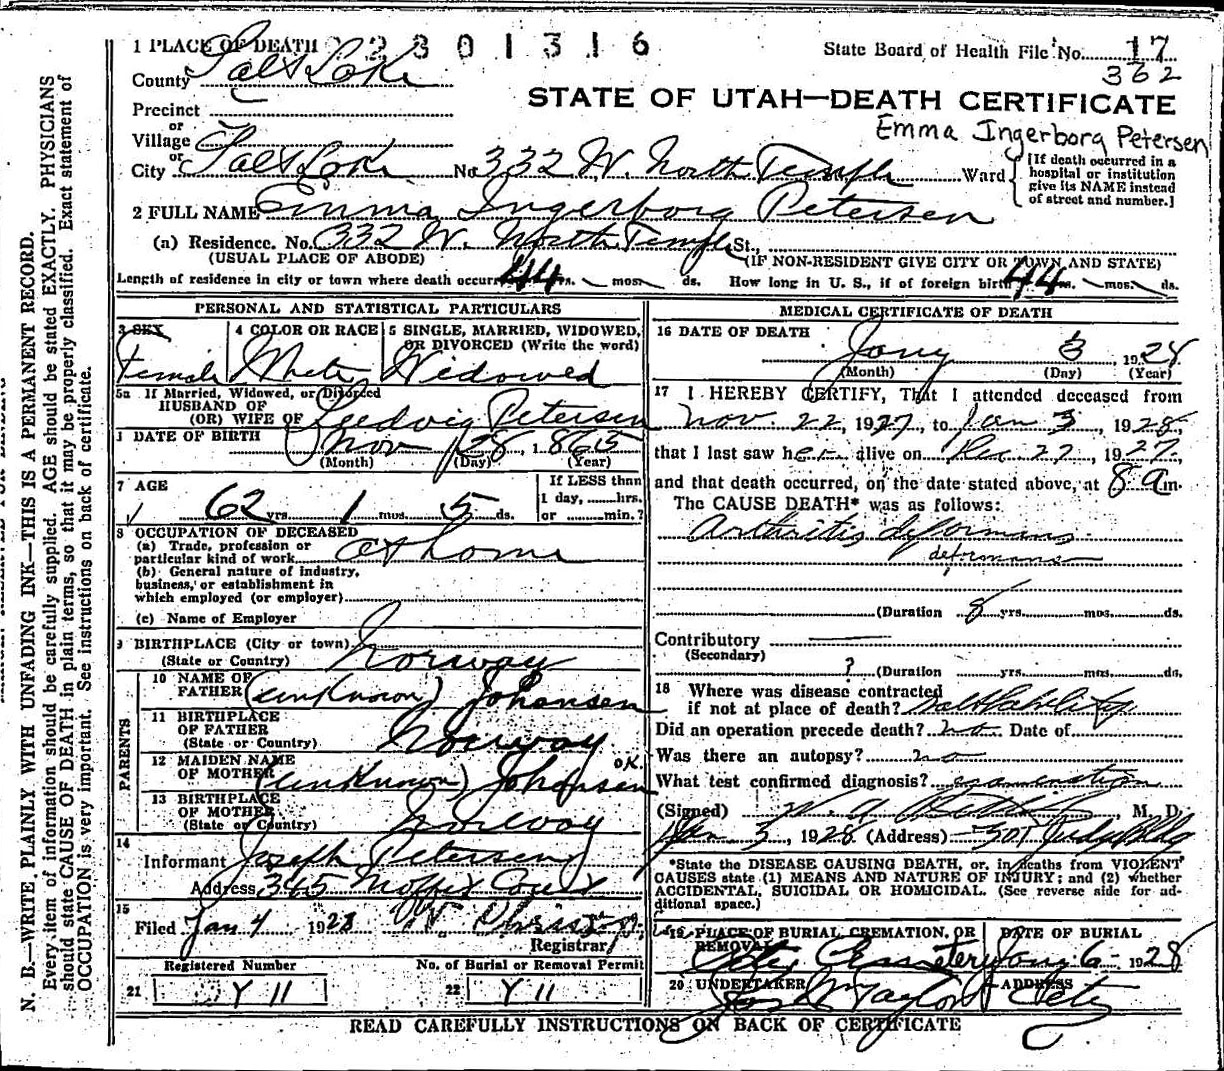 1 PLACE OF DEATH 2801316
State Board of Health File No. 17
362
County Salt Lake
STATE OF UTAH—DEATH CERTIFICATE
Precinct
or
Village
Emma Ingerborg Petersen
or
City Salt Lake No 332 W. North Temple Ward
[If death occurred in a hospital or institution give its NAME instead of street and number.]
2 FULL NAME Emma Ingerborg Petersen
(a) Residence. No. 332 W. North Temple St.,
(USUAL PLACE OF ABODE) (IF NON-RESIDENT GIVE CITY OR TOWN AND STATE)
Length of residence in city or town where death occurred 44 yrs. mos. ds. How long in U. S., if of foreign birth 44 yrs. mos. ds.
PERSONAL AND STATISTICAL PARTICULARS
3 SEX Female
4 COLOR OR RACE White
5 SINGLE, MARRIED, WIDOWED, OR DIVORCED (Write the word) Widowed
5a If Married, Widowed, or Divorced
HUSBAND OF
(OR) WIFE OF Ludvig Petersen
DATE OF BIRTH Nov 28, 1865
(Month) (Day) (Year)
7 AGE 62 yrs 1 mos. 5 ds.
If LESS than 1 day, ......hrs. or ......min.?
8 OCCUPATION OF DECEASED
(a) Trade, profession or particular kind of work at home
(b) General nature of industry, business, or establishment in which employed (or employer)
(c) Name of Employer
9 BIRTHPLACE (City or town)
(State or Country) Norway
PARENTS
10 NAME OF FATHER (unknown) Johansen
11 BIRTHPLACE OF FATHER (State or Country) Norway
12 MAIDEN NAME OF MOTHER (unknown) Johansen OK.
13 BIRTHPLACE OF MOTHER (State or Country) Norway
14
Informant Joseph Petersen
Address 345 Moffit Court
15
Filed Jan 4 1928
Registrar
Registered Number No. of Burial or Removal Permit
21 Y 11 22 Y 11
MEDICAL CERTIFICATE OF DEATH
16 DATE OF DEATH
Jany 3, 1928
(Month) (Day) (Year)
17 I HEREBY CERTIFY, That I attended deceased from
Nov. 22, 1927, to Jan 3, 1928.
that I last saw her alive on Dec. 27, 1927,
and that death occurred, on the date stated above, at 8 am.
The CAUSE DEATH* was as follows:
Arthritis deformans
deformans
(Duration 8 yrs. mos. ds.
Contributory
(Secondary)
? (Duration yrs. mos. ds.
18 Where was disease contracted
if not at place of death? Salt Lake City
Did an operation precede death? no Date of
Was there an autopsy? no
What test confirmed diagnosis? examination
(Signed) M. D.
Jan 3, 1928 (Address) 301 Judge Bldg
*State the DISEASE CAUSING DEATH, or, in deaths from VIOLENT
CAUSES state (1) MEANS AND NATURE OF INJURY; and (2) whether
ACCIDENTAL, SUICIDAL OR HOMICIDAL. (See reverse side for ad-
ditional space.)
19 PLACE OF BURIAL, CREMATION, OR REMOVAL City Cemetery
DATE OF BURIAL Jany 6 1928
20 UNDERTAKER Jos Wm Taylor
ADDRESS City
READ CAREFULLY INSTRUCTIONS ON BACK OF CERTIFICATE
N. B.—WRITE PLAINLY WITH UNFADING INK—THIS IS A PERMANENT RECORD.
Every item of information should be carefully supplied. AGE should be stated EXACTLY. PHYSICIANS
should state CAUSE OF DEATH in plain terms, so that it may be properly classified. Exact statement of
OCCUPATION is very important. See instructions on back of certificate.